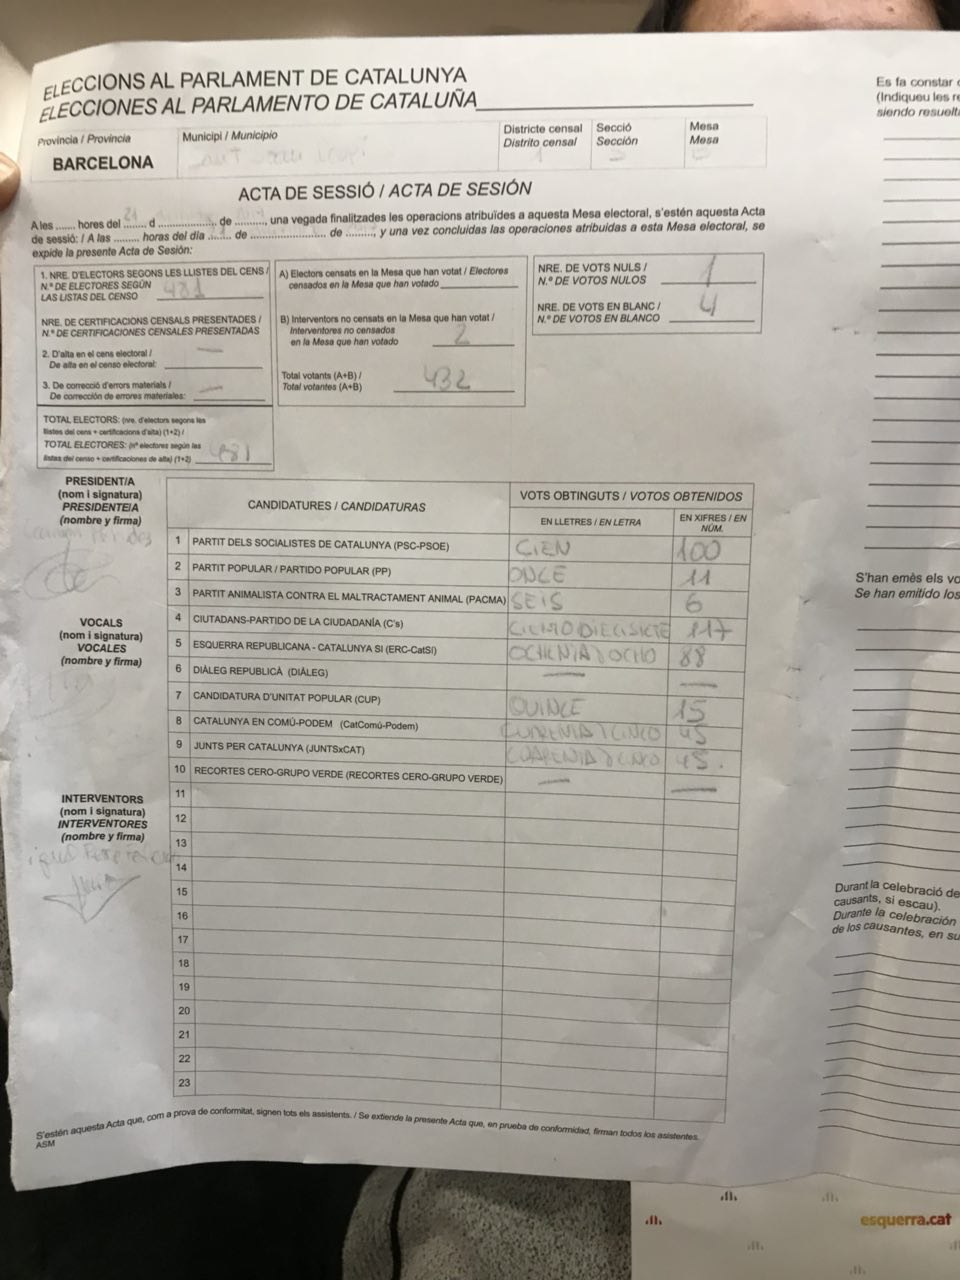 ELECCIONS AL PARLAMENT DE CATALUNYA
ELECCIONES AL PARLAMENTO DE CATALUÑA
Província / Provincia
BARCELONA
Municipi / Municipio
Districte censal
Distrito censal
1
Secció
Sección
Mesa
Mesa
ACTA DE SESSIÓ / ACTA DE SESIÓN
A les ...... hores del 21 d ............... de ........., una vegada finalitzades les operacions atribuïdes a aquesta Mesa electoral, s'estén aquesta Acta
de sessió: / A las ........ horas del día ....... de ..................... de ........., y una vez concluidas las operaciones atribuidas a esta Mesa electoral, se
expide la presente Acta de Sesión:
1. NRE. D'ELECTORS SEGONS LES LLISTES DEL CENS /
N.º DE ELECTORES SEGÚN
LAS LISTAS DEL CENSO 481
NRE. DE CERTIFICACIONS CENSALS PRESENTADES /
N.º DE CERTIFICACIONES CENSALES PRESENTADAS
2. D'alta en el cens electoral /
De alta en el censo electoral: —
3. De correcció d'errors materials /
De corrección de errores materiales: —
TOTAL ELECTORS: (nre. d'electors segons les
llistes del cens + certificacions d'alta) (1+2) /
TOTAL ELECTORES: (nº electores según las
listas del censo + certificaciones de alta) (1+2) 481
A) Electors censats en la Mesa que han votat / Electores
censados en la Mesa que han votado
B) Interventors no censats en la Mesa que han votat /
Interventores no censados
en la Mesa que han votado 2
Total votants (A+B) /
Total votantes (A+B) 432
NRE. DE VOTS NULS /
N.º DE VOTOS NULOS 1
NRE. DE VOTS EN BLANC /
N.º DE VOTOS EN BLANCO 4
PRESIDENT/A
(nom i signatura)
PRESIDENTE/A
(nombre y firma)
VOCALS
(nom i signatura)
VOCALES
(nombre y firma)
INTERVENTORS
(nom i signatura)
INTERVENTORES
(nombre y firma)
CANDIDATURES / CANDIDATURAS
VOTS OBTINGUTS / VOTOS OBTENIDOS
EN LLETRES / EN LETRA
EN XIFRES / EN
NÚM.
1 PARTIT DELS SOCIALISTES DE CATALUNYA (PSC-PSOE) CIEN 100
2 PARTIT POPULAR / PARTIDO POPULAR (PP) ONCE 11
3 PARTIT ANIMALISTA CONTRA EL MALTRACTAMENT ANIMAL (PACMA) SEIS 6
4 CIUTADANS-PARTIDO DE LA CIUDADANÍA (C's) CIENTO DIECISIETE 117
5 ESQUERRA REPUBLICANA - CATALUNYA SÍ (ERC-CatSí) OCHENTA Y OCHO 88
6 DIÀLEG REPUBLICÀ (DIÀLEG) — —
7 CANDIDATURA D'UNITAT POPULAR (CUP) QUINCE 15
8 CATALUNYA EN COMÚ-PODEM (CatComú-Podem) CUARENTA Y CINCO 45
9 JUNTS PER CATALUNYA (JUNTSxCAT) CUARENTA Y CINCO 45.
10 RECORTES CERO-GRUPO VERDE (RECORTES CERO-GRUPO VERDE) — —
11
12
13
14
15
16
17
18
19
20
21
22
23
S'estén aquesta Acta que, com a prova de conformitat, signen tots els assistents. / Se extiende la presente Acta que, en prueba de conformidad, firman todos los asistentes.
ASM
Es fa constar
(Indiqueu les
siendo
S'han emès els
Se han emitido los
Durant la celebració de
causants, si escau).
Durante la celebración
de los causantes, en su
esquerra.cat